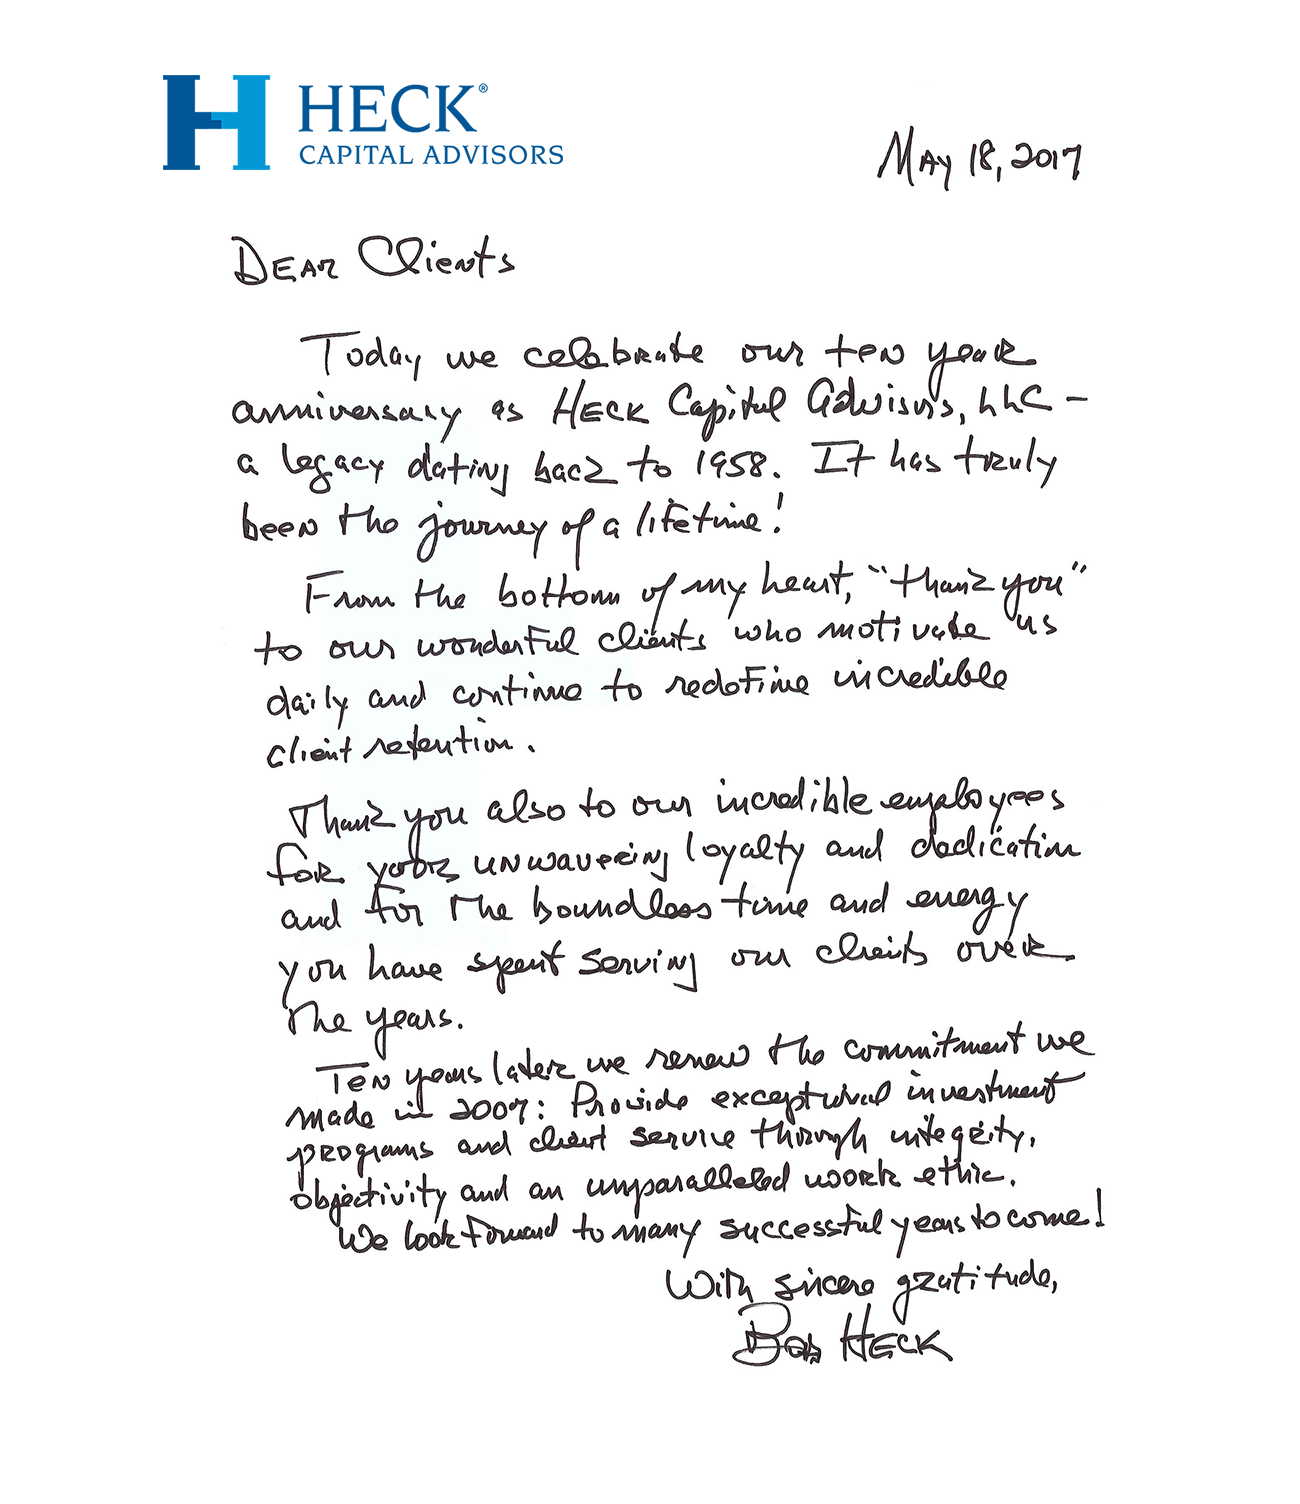 HECK®
CAPITAL ADVISORS
May 18, 2017
Dear Clients
Today we celebrate our ten year
anniversary as Heck Capital Advisors, LLC -
a legacy dating back to 1958. It has truly
been the journey of a lifetime!
From the bottom of my heart, "thank you"
to our wonderful clients who motivate us
daily and continue to redefine incredible
client retention.
Thank you also to our incredible employees
for your unwavering loyalty and dedication
and for the boundless time and energy
you have spent serving our clients over
the years.
Ten years later we renew the commitment we
made in 2007: Provide exceptional investment
programs and client service through integrity,
objectivity and an unparalleled work ethic.
We look forward to many successful years to come!
With sincere gratitude,
Bob Heck